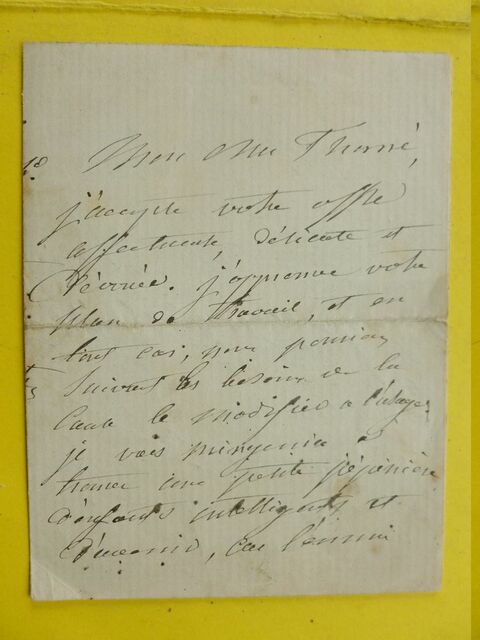 Mon cher Thomé,
j'accepte votre offre
affectueuse, délicate et
dévouée. j'approuve votre
plan de travail, et en
tout cas, nous pourrions
suivant les besoins de la
cause le modifier à l'usage.
je vais m'ingénier à
trouver une petite pépinière
d'enfants intelligents et
d'avenir, car l'ennui